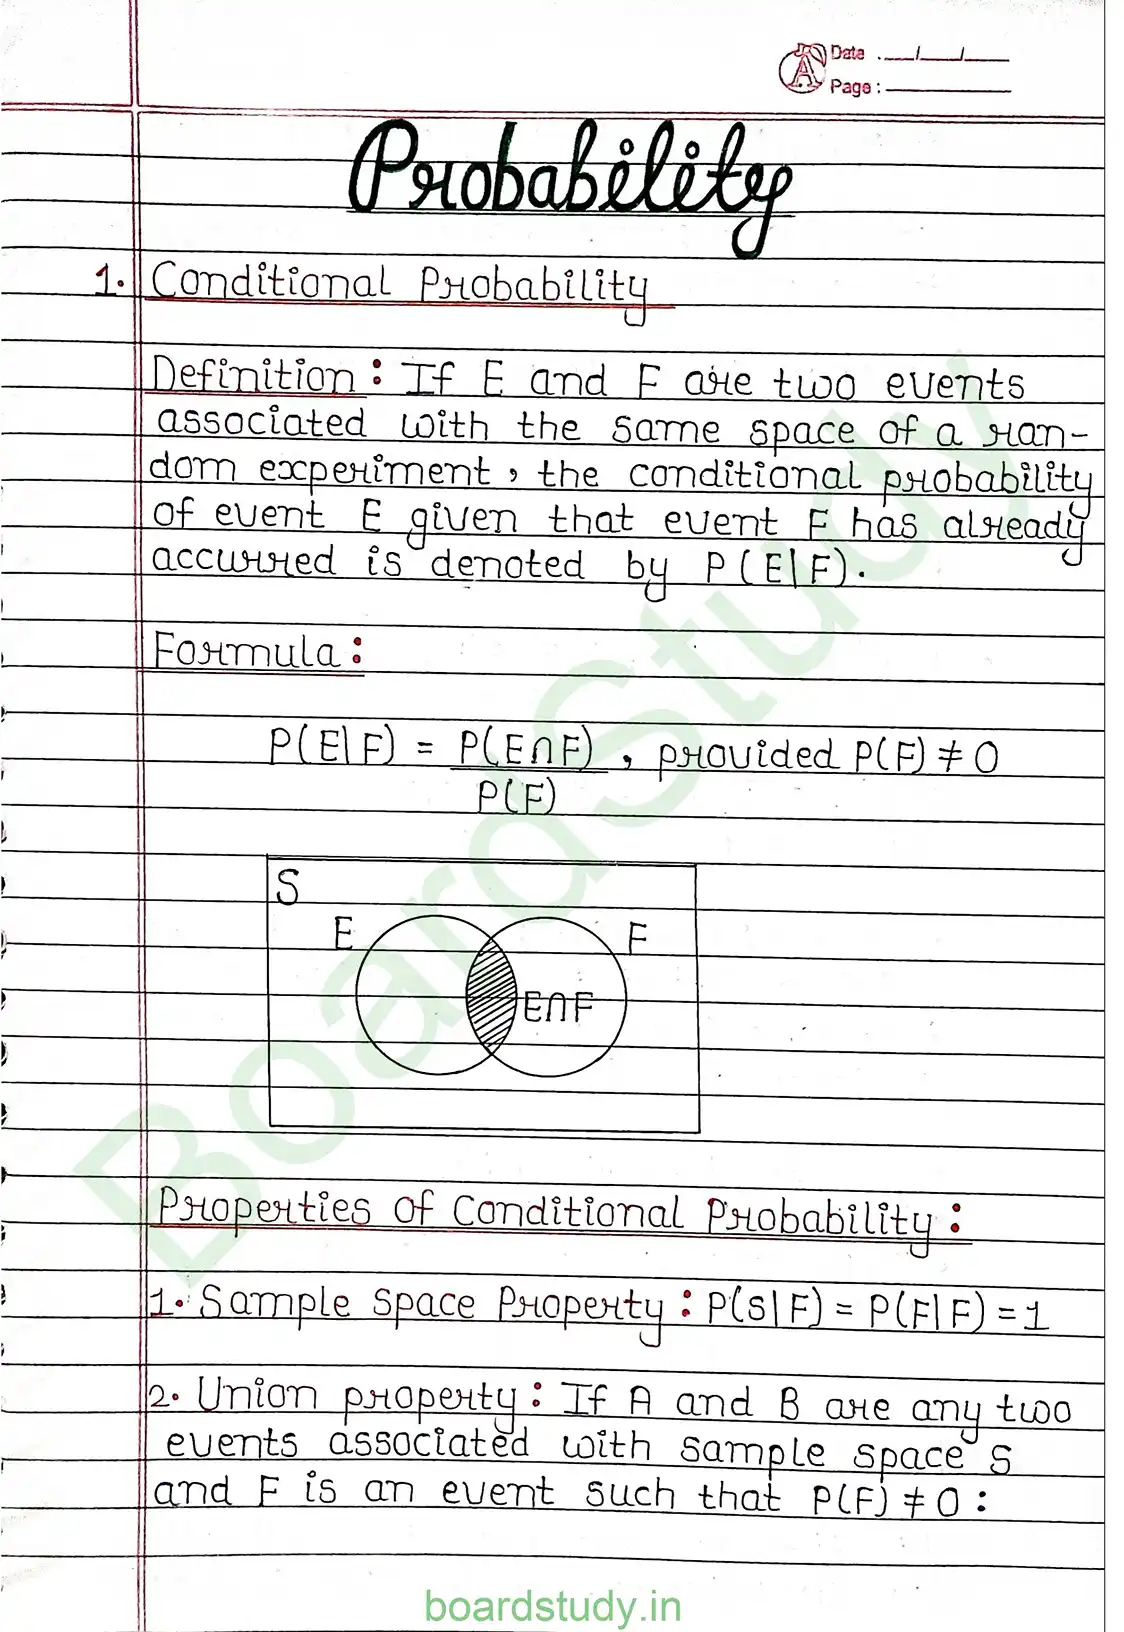 Date : __/__/__
Page :
Probability
1. Conditional Probability
Definition : If E and F are two events
associated with the same space of a ran-
dom experiment, the conditional probability
of event E given that event F has already
accurred is denoted by P(E|F).
Formula :
P(E|F) = P(E∩F) , provided P(F) ≠ 0
P(F)
S
E
F
E∩F
Properties of Conditional Probability :
1. Sample space Property : P(S|F) = P(F|F) = 1
2. Union property : If A and B are any two
events associated with sample space S
and F is an event such that P(F) ≠ 0 :
BoardStudy
boardstudy.in